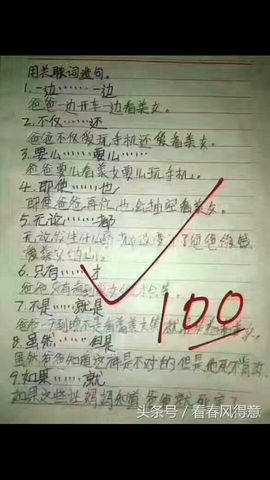 用关联词造句。
1.一边……一边
爸爸一边开车一边看美女。
2.不仅……还
爸爸不仅爱玩手机还爱看美女。
3.要么……要么……
爸爸要么看美女要么玩手机。
4.即使……也
即使爸爸再忙也会抽空看美女。
5.无论……都
无论发生什么事都改变不了爸爸
6.只有……才
爸爸只有看到美女
7.不是……就是
爸爸一天到晚不是看美女
8.虽然……但是
虽然爸爸知道这样是不对的但是他死不肯改
9.如果……就
如果这些让妈妈知道爸爸就死定了
100
头条号/看春风得意